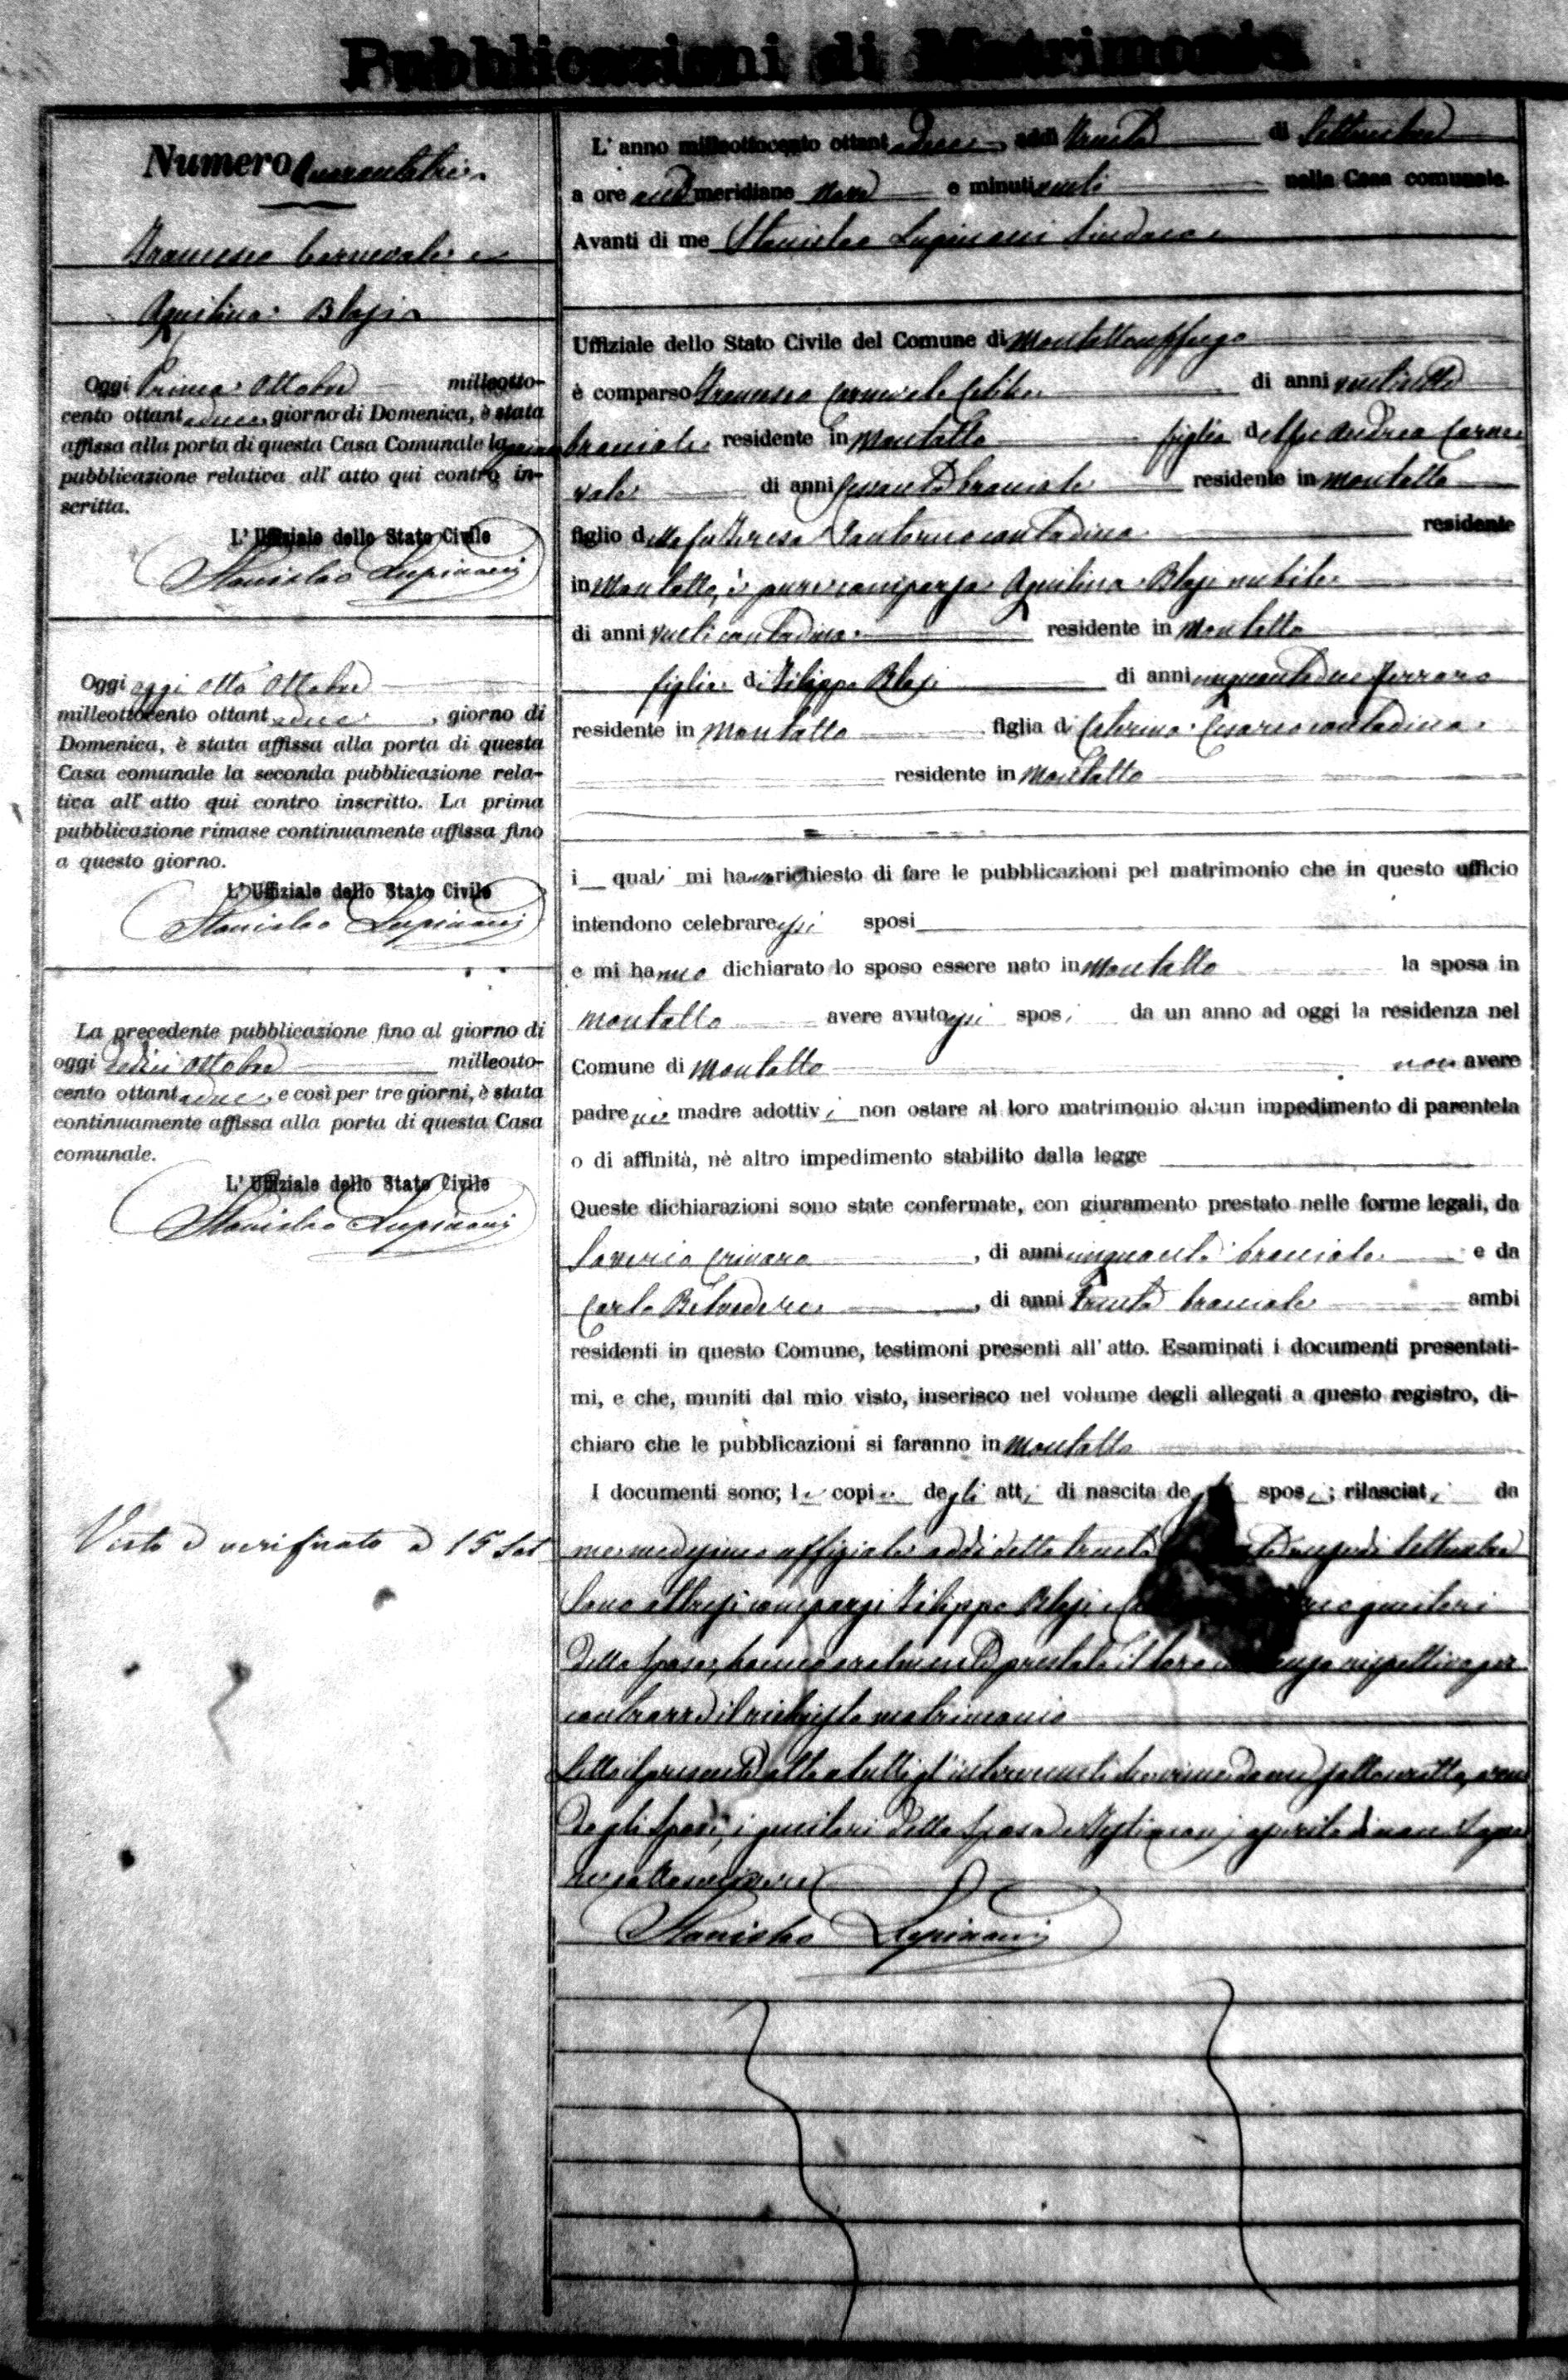 Pubblicazioni di Matrimonio
Numero Quarantatrè
Francesco Carnevale e
Aquilina Blasi
Oggi Primo Ottobre milleotto-
cento ottantadue, giorno di Domenica, è stata
affissa alla porta di questa Casa Comunale la prima
pubblicazione relativa all' atto qui contro in-
scritta.
L' Uffiziale dello Stato Civile
Stanislao Lupinacci
Oggi oggi otto Ottobre
milleottocento ottantadue, giorno di
Domenica, è stata affissa alla porta di questa
Casa comunale la seconda pubblicazione rela-
tiva all' atto qui contro inscritto. La prima
pubblicazione rimase continuamente affissa fino
a questo giorno.
L' Uffiziale dello Stato Civile
Stanislao Lupinacci
La precedente pubblicazione fino al giorno di
oggi dodici Ottobre milleotto-
cento ottantadue, e così per tre giorni, è stata
continuamente affissa alla porta di questa Casa
comunale.
L' Uffiziale dello Stato Civile
Stanislao Lupinacci
Visto e verificato a 15
L' anno milleottocento ottantadue, addì trenta di Settembre
a ore anti meridiane nove e minuti venti nella Casa comunale.
Avanti di me Stanislao Lupinacci Sindaco
Uffiziale dello Stato Civile del Comune di Montaltouffugo
è comparso Francesco Carnevale celibe di anni
bracciale residente in Montalto figlio del fu Andrea Carne
vale di anni sessanta bracciale residente in Montalto
figlio della fu Teresa Santerno contadina residente
in Montalto, è pure comparsa Aquilina Blasi nubile
di anni venti contadina residente in Montalto
figlia di Filippo Blasi di anni cinquantadue Ferraro
residente in Montalto figlia di Caterina Cesario contadina
residente in Montalto
i quali mi hanno richiesto di fare le pubblicazioni pel matrimonio che in questo ufficio
intendono celebrare essi sposi
e mi hanno dichiarato lo sposo essere nato in Montalto la sposa in
Montalto avere avuto essi sposi da un anno ad oggi la residenza nel
Comune di Montalto non avere
padre nè madre adottivi non ostare al loro matrimonio alcun impedimento di parentela
o di affinità, nè altro impedimento stabilito dalla legge
Queste dichiarazioni sono state confermate, con giuramento prestato nelle forme legali, da
Saverio Crivaro, di anni cinquanta bracciale e da
Carlo Belvedere, di anni trenta bracciale ambi
residenti in questo Comune, testimoni presenti all' atto. Esaminati i documenti presentati-
mi, e che, muniti dal mio visto, inserisco nel volume degli allegati a questo registro, di-
chiaro che le pubblicazioni si faranno in Montalto
I documenti sono; le copie degli atti di nascita de sposi; rilasciati da
me medesimo uffiziale addì detto trenta Settembre
Sono altresì comparsi Filippo Blasi e genitori
della sposa, hanno oralmente prestato il loro rispettivo per
contrarre il richiesto matrimonio
Letto il presente atto a tutti gl'intervenuti
degli sposi, i genitori della sposa e testimoni di non sape
re sottoscrivere
Stanislao Lupinacci